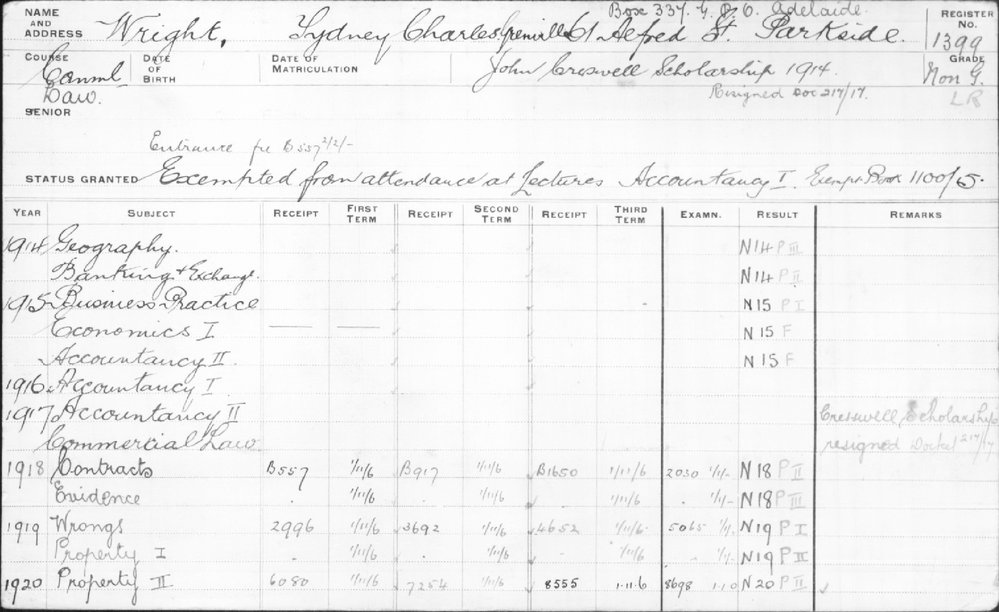 Box 337. G. P. O. Adelaide.
NAME AND ADDRESS Wright, Sydney Charles Grenville 61 Alfred St. Parkside. REGISTER No. 1399
COURSE Comml Law. DATE OF BIRTH DATE OF MATRICULATION John Creswell Scholarship 1914. GRADE Non G.
Resigned Doc 217/17. LR
SENIOR
Entrance fee B557 2/2/-
STATUS GRANTED Exempted from attendance at Lectures Accountancy I. Exempt Book 1100/5.
YEAR SUBJECT RECEIPT FIRST TERM RECEIPT SECOND TERM RECEIPT THIRD TERM EXAMN. RESULT REMARKS
1914 Geography. N14 P III
Banking & Exchange. N14 P II
1915 Business Practice N15 P I
Economics I N15 F
Accountancy II. N15 F
1916 Accountancy I
1917 Accountancy II Creswell Scholarship
Commercial Law. resigned Docket 217/17
1918 Contracts B557 1/11/6 B917 1/11/6 B1650 1/11/6 2030 1/1/- N18 P II
Evidence 1/11/6 1/11/6 1/11/6 1/1/- N18 P III
1919 Wrongs 2996 1/11/6 3692 1/11/6 4652 1/11/6 5065 1/1/. N19 P I
Property I 1/11/6 1/11/6 1/11/6 1/1/- N19 P II
1920 Property II 6080 1/11/6 7254 1/11/6 8555 1.11.6 8698 1.1.0 N20 P II